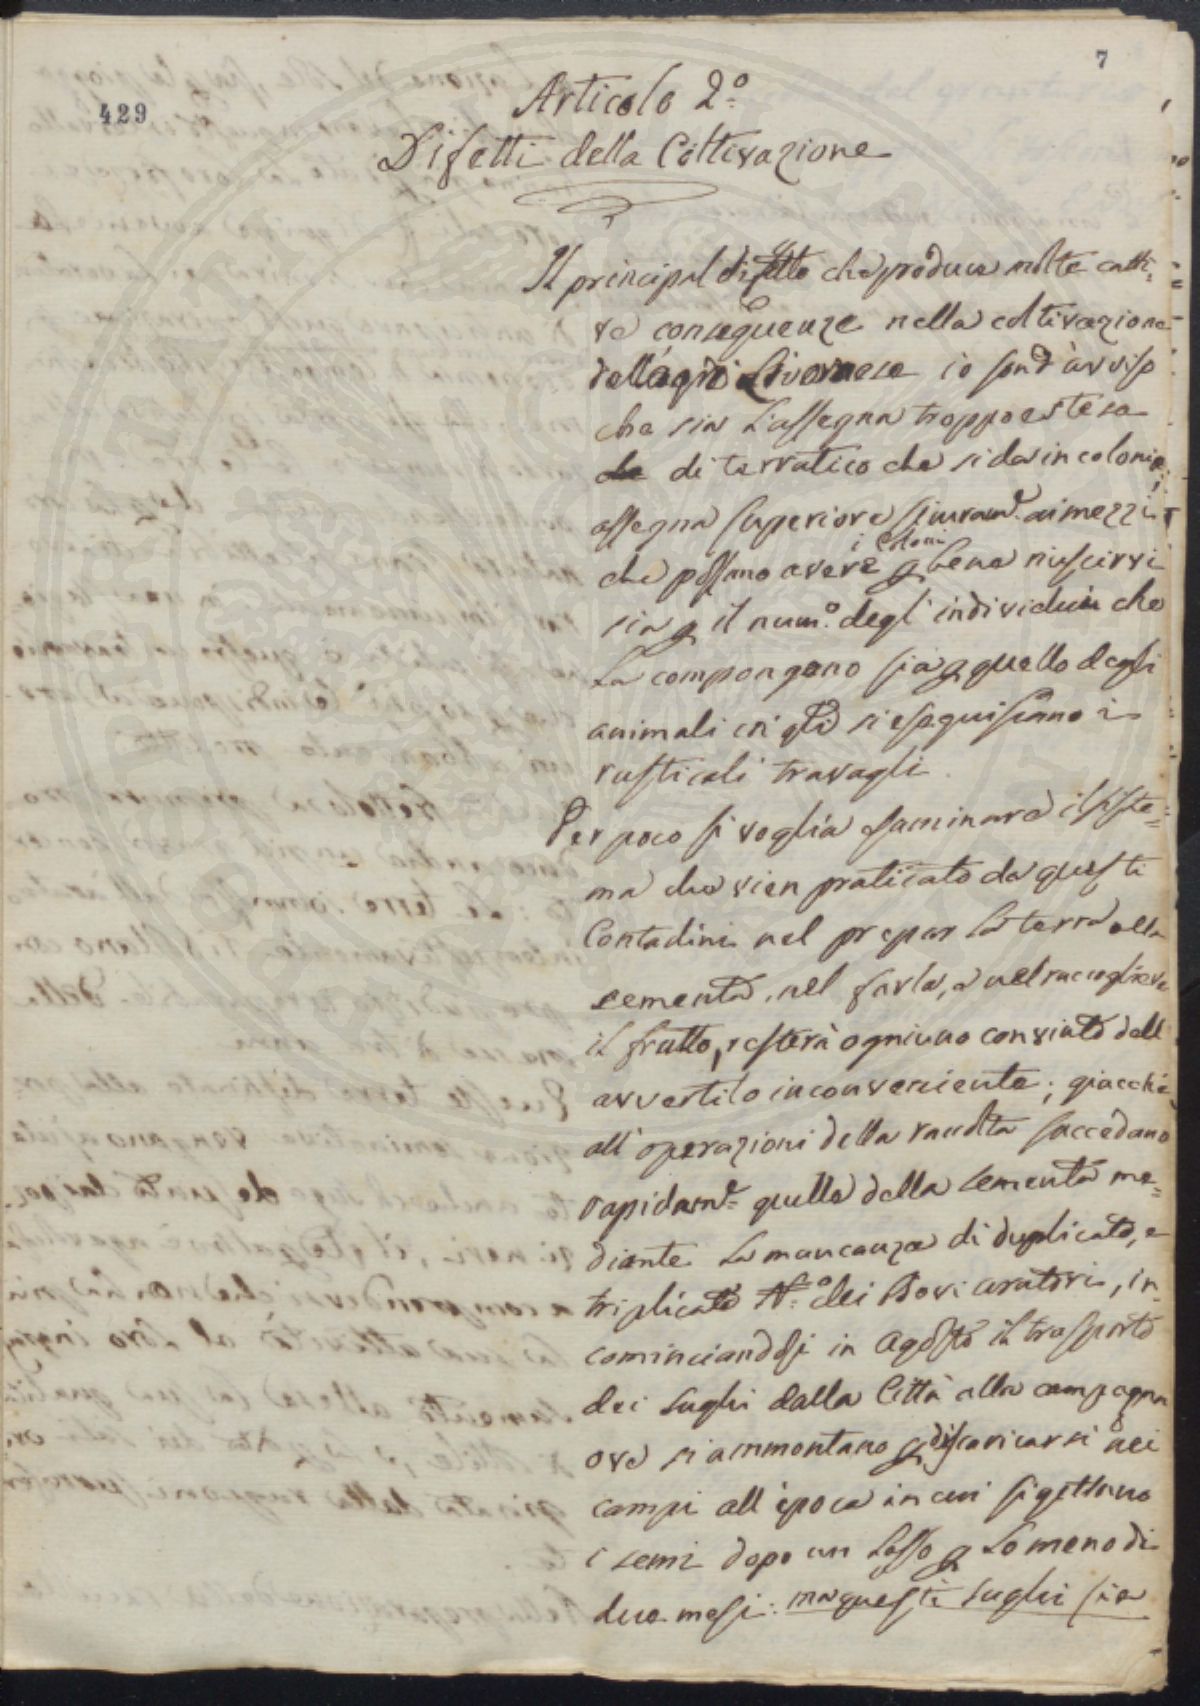 7
429
Articolo 2.º
Difetti della Coltivazione
Il principal difetto che produce molte catti-
ve conseguenze nella coltivazione
dell'agro Livornese io sono d'avviso
che sia l'assegna troppo estesa
di terratico che si da in colonia,
assegna superiore sicuram.e ai mezzi
che possano avere i Coloni p bene riuscirvi
sia p il num.º degl'individui che
la compongano sia p quello degli
animali coi q.li si eseguiscano i
rusticali travagli.
Per poco si voglia esaminare il siste=
ma che vien praticato da questi
Contadini nel prepar la terra alla
sementa, nel farla, e nel raccogliere
il frutto, resterà ogniuno convinto dell
avvertito inconveniente; giacchè
all'operazioni della raccolta succedano
rapidam.e quelle della sementa me=
diante la mancanza di duplicato, e
triplicato N.º dei Bovi aratori, in-
cominciandosi in Agosto il trasporto
dei sughi dalla Città alla campagna
ove si ammontano p discaricarsi nei
campi all'epoca in cui si gettano
i semi dopo un lasso p lo meno di
due mesi: ma questi sughi sia